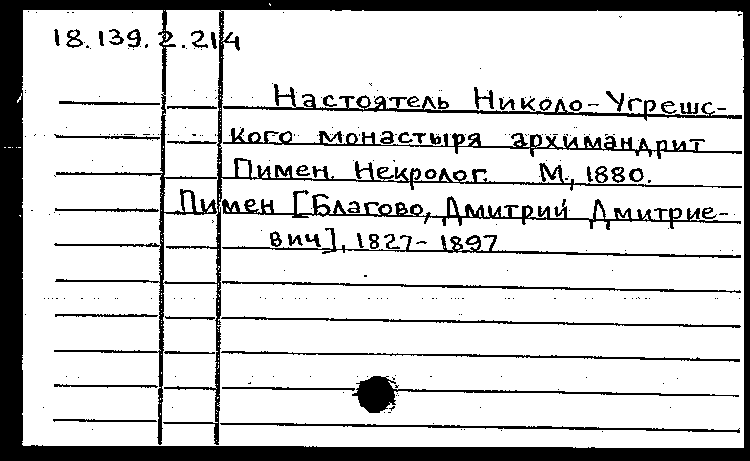 18.139.2.214
Настоятель Николо-Угрешс-
кого монастыря архимандрит
Пимен. Некролог. М., 1880.
Пимен [Благово, Дмитрий Дмитрие-
вич], 1827-1897